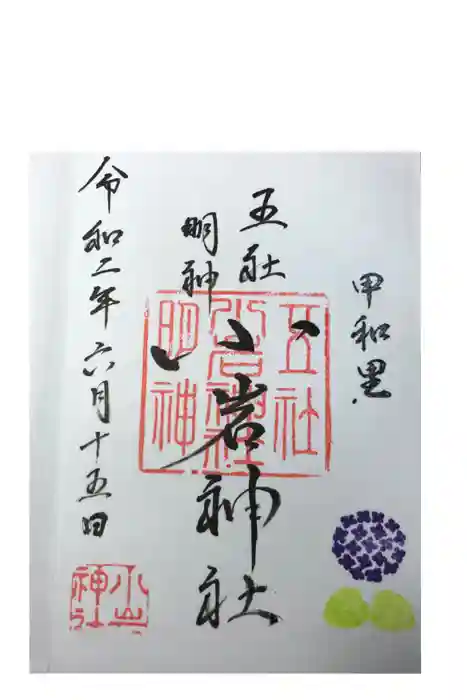 甲和里
五社
明神
小岩神社
令和二年六月十五日
五社
小岩神社
明神
小岩
神社